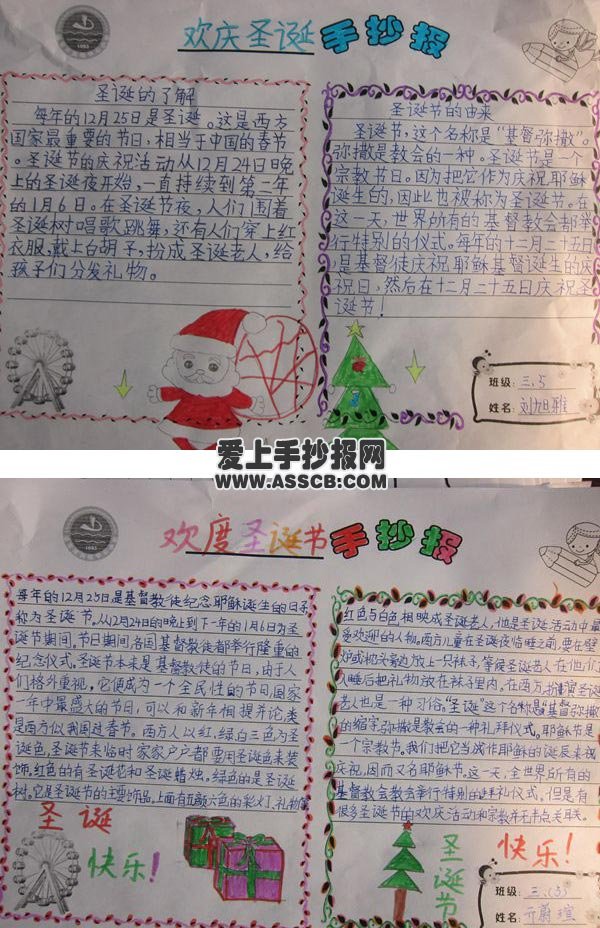 欢庆圣诞手抄报
圣诞的了解
每年的12月25日是圣诞。这是西方
国家最重要的节日,相当于中国的春节
。圣诞节的庆祝活动从12月24日晚
上的圣诞夜开始,一直持续到第二年
的1月6日。在圣诞节夜,人们围着
圣诞树唱歌跳舞,还有人们穿上红
衣服,戴上白胡子,扮成圣诞老人,给
孩子们分发礼物。
圣诞节的由来
圣诞节,这个名称是“基督弥撒”。
弥撒是教会的一种。圣诞节是一个
宗教节日。因为把它作为庆祝耶稣
诞生的,因此也被称为圣诞节。在
这一天,世界所有的基督教会都举
行特别的仪式。每年的十二月二十五日
是基督徒庆祝耶稣基督诞生的庆
祝日,然后在十二月二十五日庆祝圣
诞节!
班级:三.5
姓名:刘旭雅
爱上手抄报网
WWW.ASSCB.COM
欢度圣诞节手抄报
每年的12月25日是基督教徒纪念耶稣诞生的日子
称为圣诞节。从12月24日的晚上到下一年的1月6日为圣
诞节期间。节日期间各国基督教徒都举行隆重的
纪念仪式。圣诞节本来是基督教徒的节日,由于人
们格外重视,它便成为一个全民性的节日国家
一年中最盛大的节日,可以和新年相提并论类
是西方似我国过春节。西方人以红,绿白三色为圣
诞色,圣诞节来临时家家户户都要用圣诞色来装
饰。红色的有圣诞花和圣诞蜡烛。绿色的是圣诞
树。它是圣诞节的主要饰品。上面有五颜六色的彩灯、礼物
圣诞
快乐!
红色与白色相映成圣诞老人,他是圣诞活动中最
受欢迎的人物。西方儿童在圣诞夜临睡之前,要在壁
炉或枕头旁边放上一只袜子,等候圣诞老人在他们
入睡后把礼物放在袜子里内。在西方,扮演圣诞
老人也是一种习俗。“圣诞”这个名称是“基督弥撒”
的缩字弥撒是教会的一种礼拜仪式。耶稣节是
一个宗教节。我们把它当成作耶稣的诞辰来
庆祝,因而又名耶稣节。这一天,全世界所有的
基督教会教会举行特别的礼拜仪式。但是有
很多圣诞节的欢庆活动和宗教并无半点关联。
圣诞节
快乐!
班级:三.(5)
姓名:亓蔚瑄